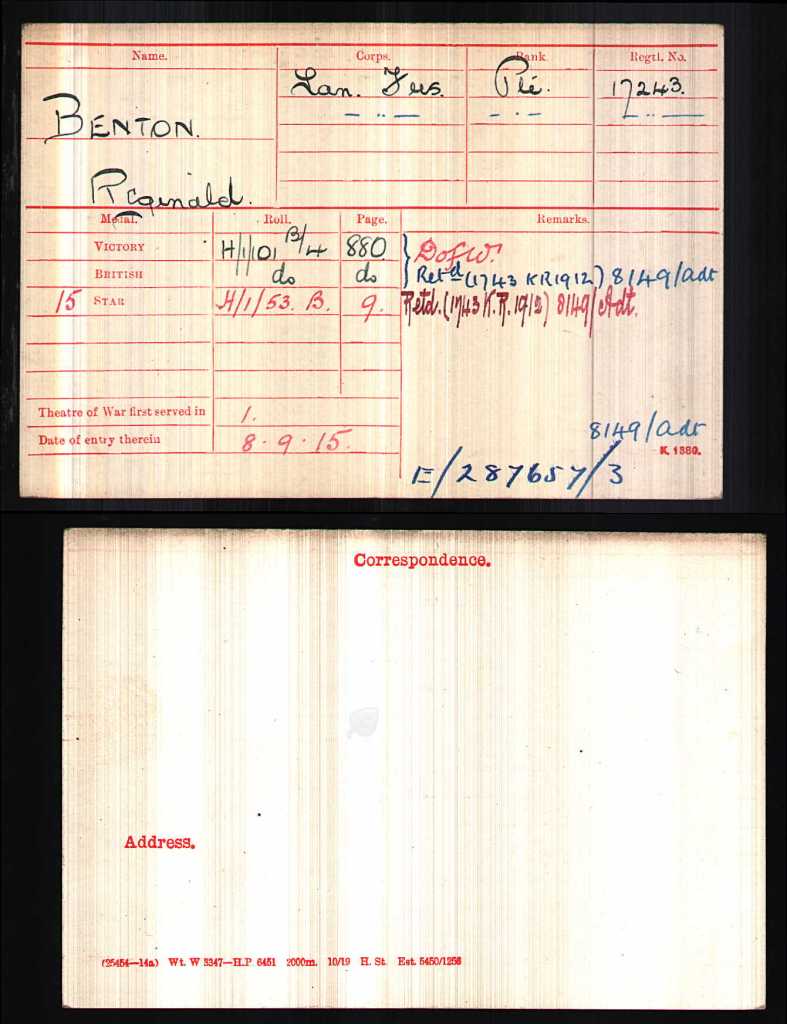 Name. Corps. Rank. Regtl. No.
Lan. Fus. Pte. 17243.
— " — - " - — " —
BENTON.
Reginald.
Medal. Roll. Page. Remarks.
VICTORY H/1/101 B/4 880 } D of W.
BRITISH do do Retd (1743 KR 1912) 8149/Adt
15 STAR H/1/53. B. 9. Retd. (1743 K.R. 1912) 8149/Adt.
Theatre of War first served in 1.
Date of entry therein 8.9.15.
8149/Adt
K. 1380.
E/287657/3
Correspondence.
Address.
(25454—14a) Wt. W 3347—H.P 6451 2000m. 10/19 H. St. Est. 5450/1256